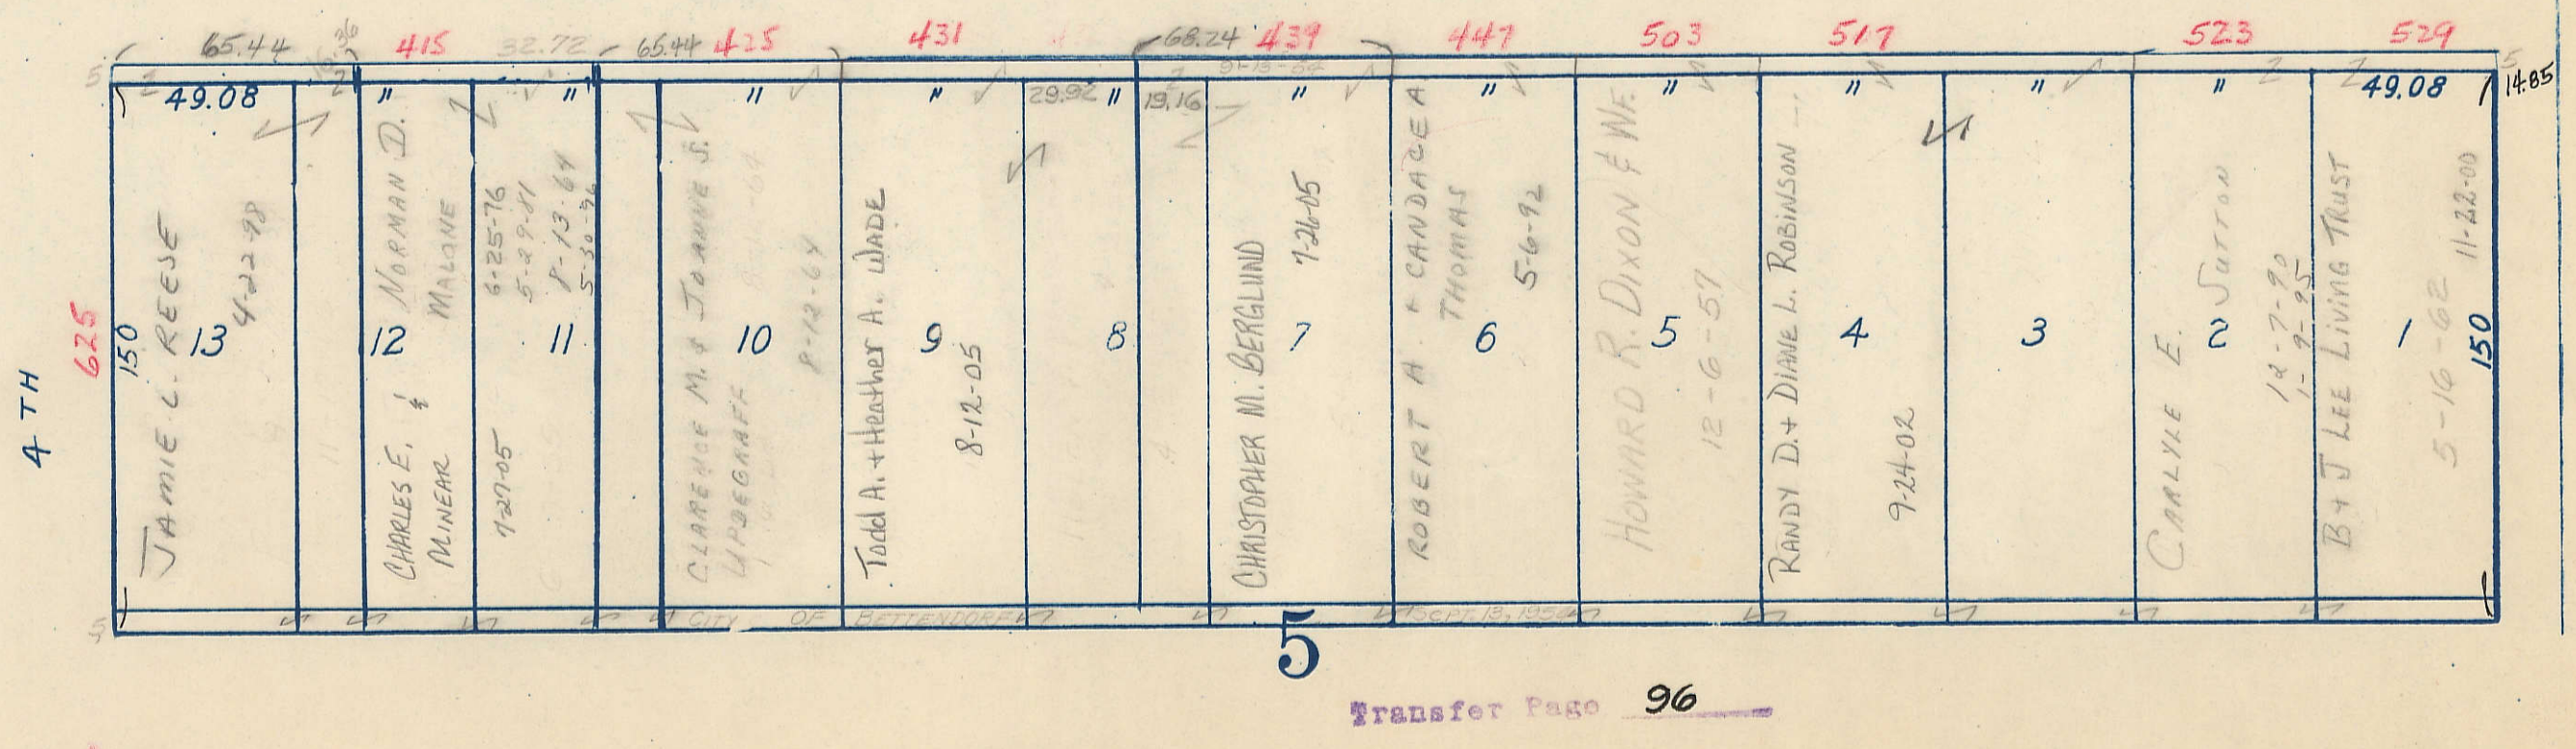 65.44 16.36 415 32.72 65.44 425 431 68.24 439 447 503 517 523 529
5 5
49.08 " " " " 29.92 " 19.16 " " " " " " 49.08 14.85
4 TH
625
150
JAMIE L. REESE
4-22-98
13
NORMAN D.
MALONE
CHARLES E. &
MINEAR
12
6-25-76
5-29-81
8-13-64
5-30-96
7-27-05
11
CLARENCE M. & JOANNE S.
UPDEGRAFF
8-12-64
10
Todd A. + Heather A. WADE
8-12-05
9
8
CHRISTOPHER M. BERGLUND
7-26-05
7
ROBERT A. + CANDACE A
THOMAS
5-6-92
6
HOWARD R. DIXON & WF.
12-6-57
5
RANDY D. + DIANE L. ROBINSON
9-24-02
4
3
CARLYLE E. SUTTON
12-7-90
1-9-95
2
B + J LEE LIVING TRUST
5-16-62
11-22-00
1
150
5 CITY OF BETTENDORF SEPT. 13, 1950
5
Transfer Page 96